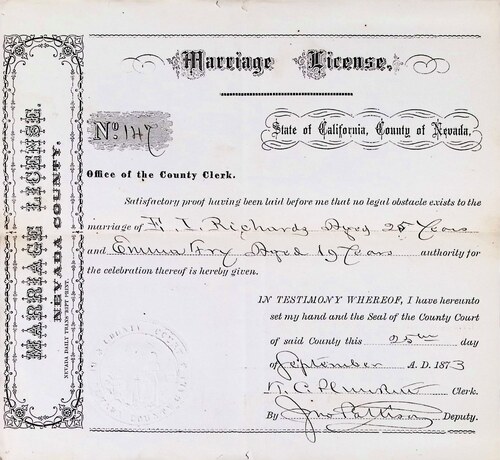 Marriage License.
No 147
State of California, County of Nevada.
Office of the County Clerk.
Satisfactory proof having been laid before me that no legal obstacle exists to the
marriage of F. I. Richards Aged 25 Years
and Emma Fry Aged 19 Years authority for
the celebration thereof is hereby given.
IN TESTIMONY WHEREOF, I have hereunto
set my hand and the Seal of the County Court
of said County this 25th day
of September A. D. 1873
Clerk.
By Jno Pattison Deputy.
MARRIAGE LICENSE.
NEVADA COUNTY.
NEVADA DAILY TRANSCRIPT PRINT.